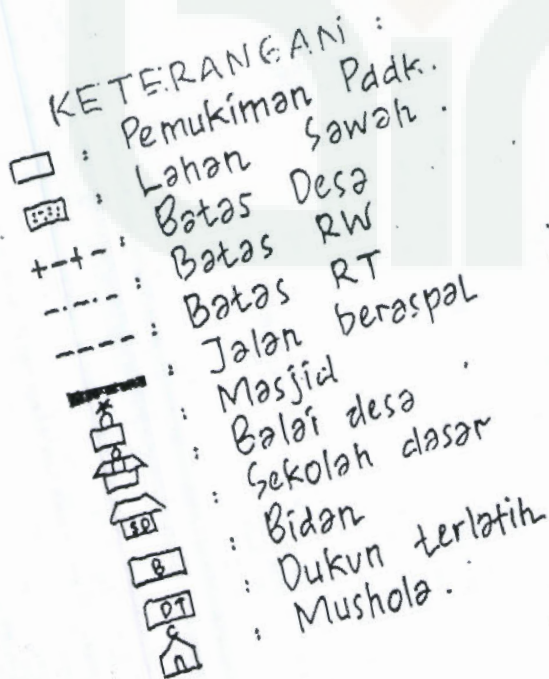 KETERANGAN :
: Pemukiman Pddk.
: Lahan Sawah.
: Batas Desa
: Batas RW
: Batas RT
: Jalan beraspal
: Masjid
: Balai desa
SD : Sekolah dasar
B : Bidan
DT : Dukun terlatih
: Mushola.